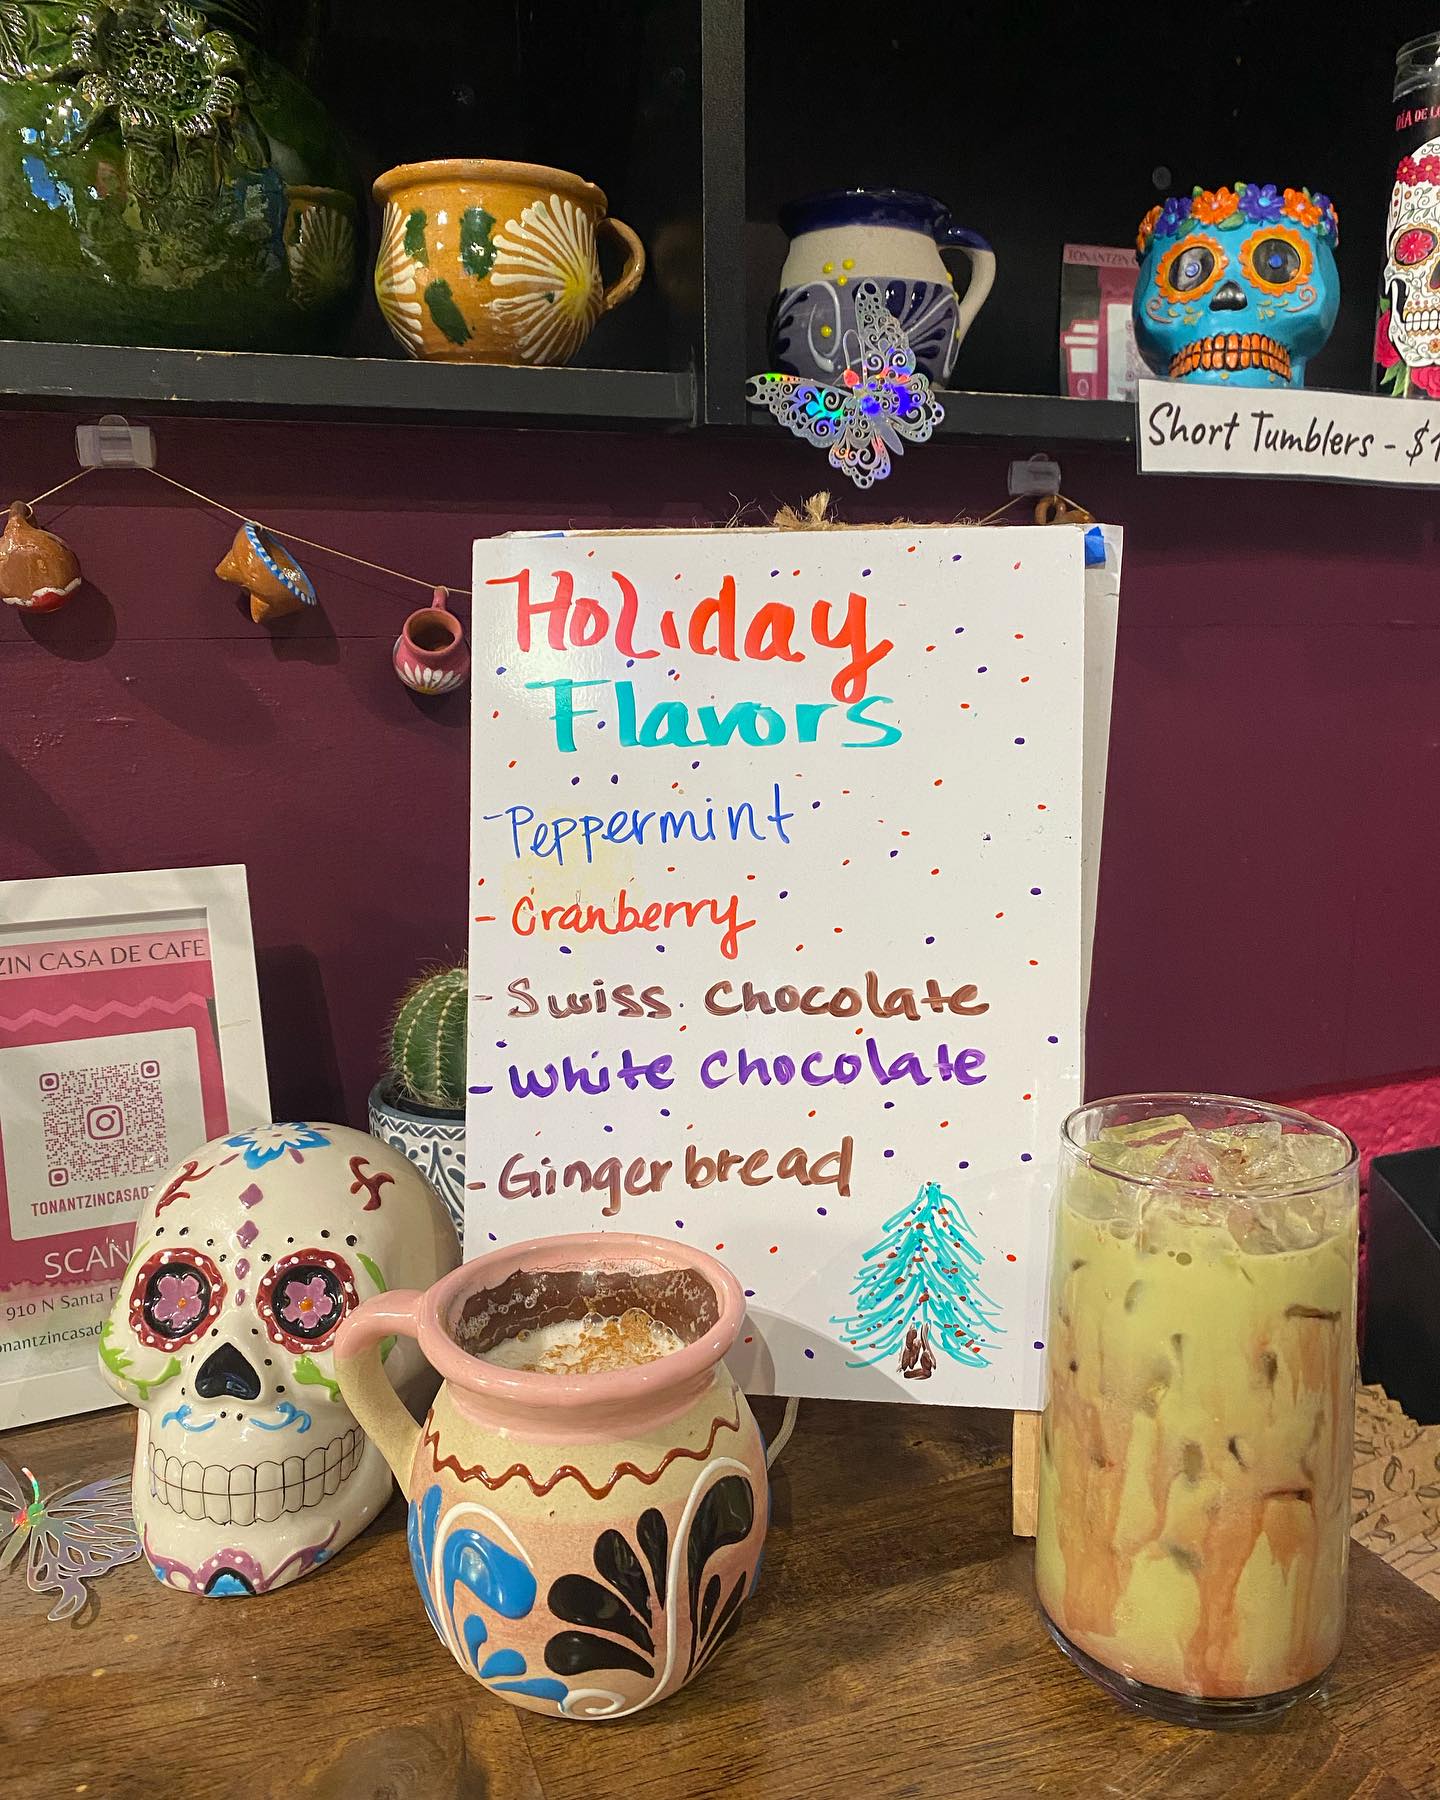 DÍA DE LO
TONANTZIN C
Short Tumblers - $1
Holiday
Flavors
- Peppermint
- Cranberry
- Swiss Chocolate
- White Chocolate
- Gingerbread
ZIN CASA DE CAFE
TONANTZINCASAD
SCAN
910 N Santa F
onantzincasad